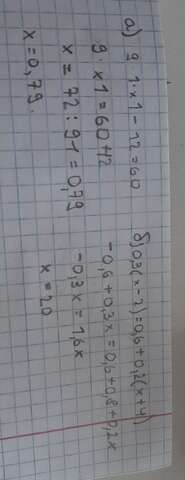 а) 9 1·x1-12=60
9·x1=60+12
x=72:91=0,79
x=0,79.
б) 0,3(x-2)=0,6+0,2(x+4)
-0,6+0,3x=0,6+0,8+0,2x
-0,3x=1,6x
x=20